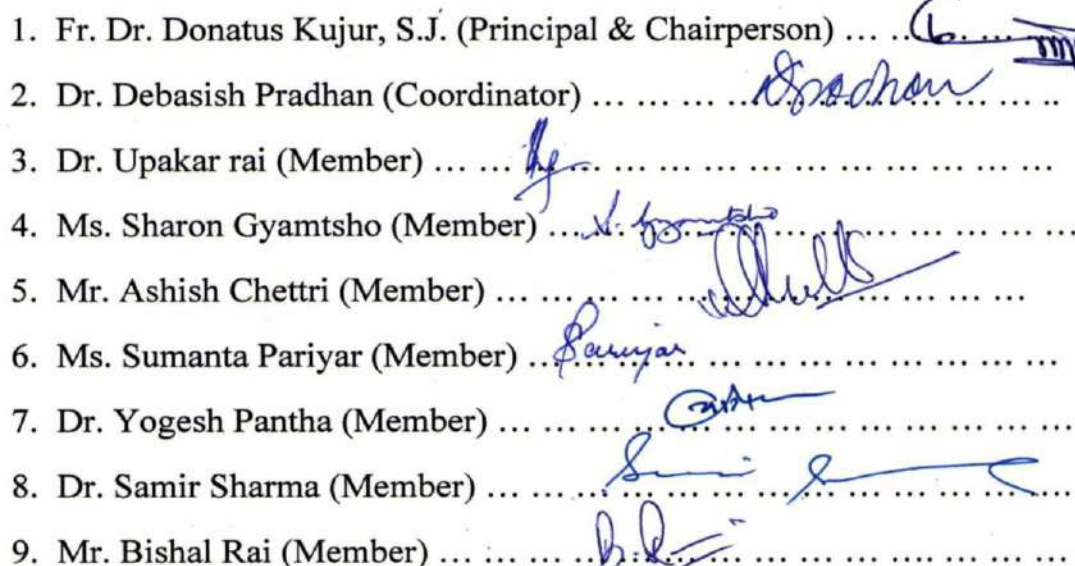 1. Fr. Dr. Donatus Kujur, S.J. (Principal & Chairperson) ... ... ... ...
2. Dr. Debasish Pradhan (Coordinator) ... ... ... ... DPradhan ... ... ..
3. Dr. Upakar rai (Member) ... ... ... ... ... ... ... ... ... ... ... ...
4. Ms. Sharon Gyamtsho (Member) ... S. Gyamtsho ... ... ... ... ... ...
5. Mr. Ashish Chettri (Member) ... ... ... ... ... ... ... ... ... ...
6. Ms. Sumanta Pariyar (Member) ... Pariyar ... ... ... ... ... ... ... ...
7. Dr. Yogesh Pantha (Member) ... ... ... ... ... ... ... ... ... ... ...
8. Dr. Samir Sharma (Member) ... ... ... ... ... ... ... ... ... ... ...
9. Mr. Bishal Rai (Member) ... ... ... ... B. Rai ... ... ... ... ... ... ...